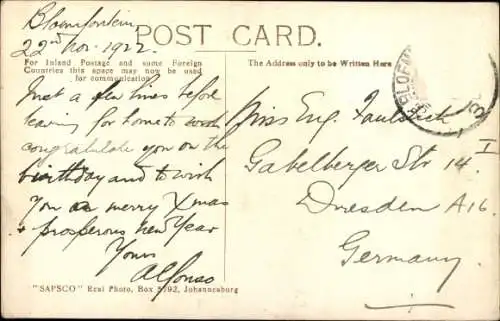 Bloemfontein
22nd Nov. 1922.
POST CARD.
For Inland Postage and some Foreign
Countries this space may now be used
for communication
The Address only to be Written Here
Just a few lines before
leaving for home to wish
congratulate you on the
birthday and to wish
you a merry Xmas
+ prosperous new year
Yours
Alfonso
Miss Eug.
I
Gabelberger Str 14.
Dresden A16.
Germany.
BLOEMF
"SAPSCO" Real Photo, Box 5792, Johannesburg